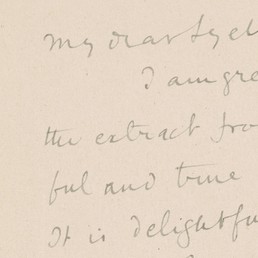 My dear Lyell
I am gre
the extract fro
ful and true
It is delightfu